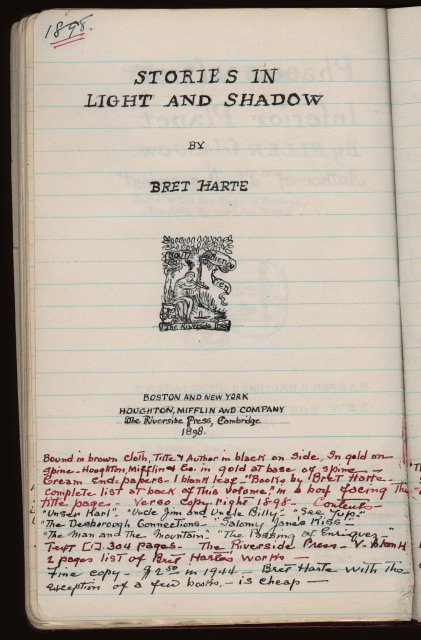 1898.
STORIES IN
LIGHT AND SHADOW
BY
BRET HARTE
TOUT BIEN
OU RIEN
The Riverside Press
BOSTON AND NEW YORK
HOUGHTON, MIFFLIN AND COMPANY
The Riverside Press, Cambridge
1898.
Bound in brown cloth, Title & Author in black on side, In gold on
spine - Houghton, Mifflin & Co. in gold at base of spine -
Cream end-papers - 1 blank leaf - "Books by Bret Harte -
Complete list at back of this volume," in a box facing the
title page - Verso Copy right 1898 - Contents -
"Unser Karl". "Uncle Jim and Uncle Billy" - "See Yup" -
"The Desborough Connections - "Salomy Jane's Kiss"
"The Man and the Mountain". "The Passing of Enriquez -
Text [1]. 304 pages - The Riverside Press - V. Blank
2 pages list of Bret Harte's works -
Fine copy - $2.50 in 1944 - Bret Harte with the
exception of a few books - is cheap -